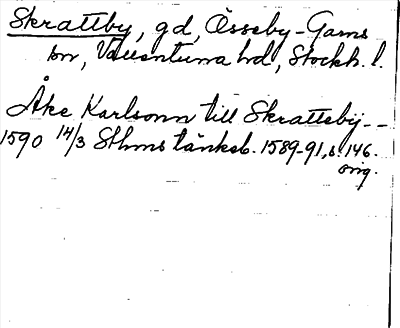 Skrattby, gd, Össeby-Garns
sn, Vallentuna hd, Stockh. l.
Åke Karlsonn till Skratteby--
1590 14/3 Sthms tänkeb. 1589-91, s. 146.
orig.